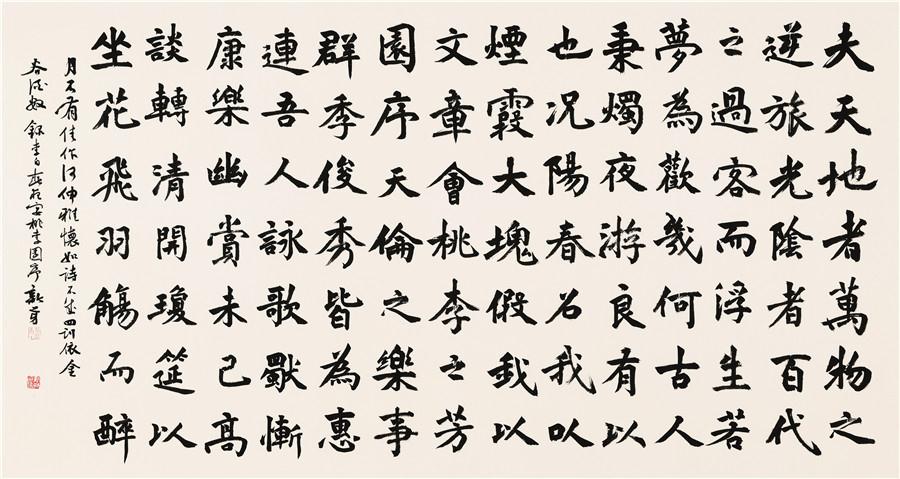 夫天地者萬物之
逆旅光陰者百代
之過客而浮生若
夢為歡幾何古人
秉燭夜游良有以
也況陽春召我以
煙霞大塊假我以
文章會桃李之芳
園序天倫之樂事
群季俊秀皆為惠
連吾人詠歌獨慚
康樂幽賞未已高
談轉清開瓊筵以
坐花飛羽觴而醉
月不有佳作何伸雅懷如詩不成罰依金
谷酒數 錄李白春夜宴桃李園序